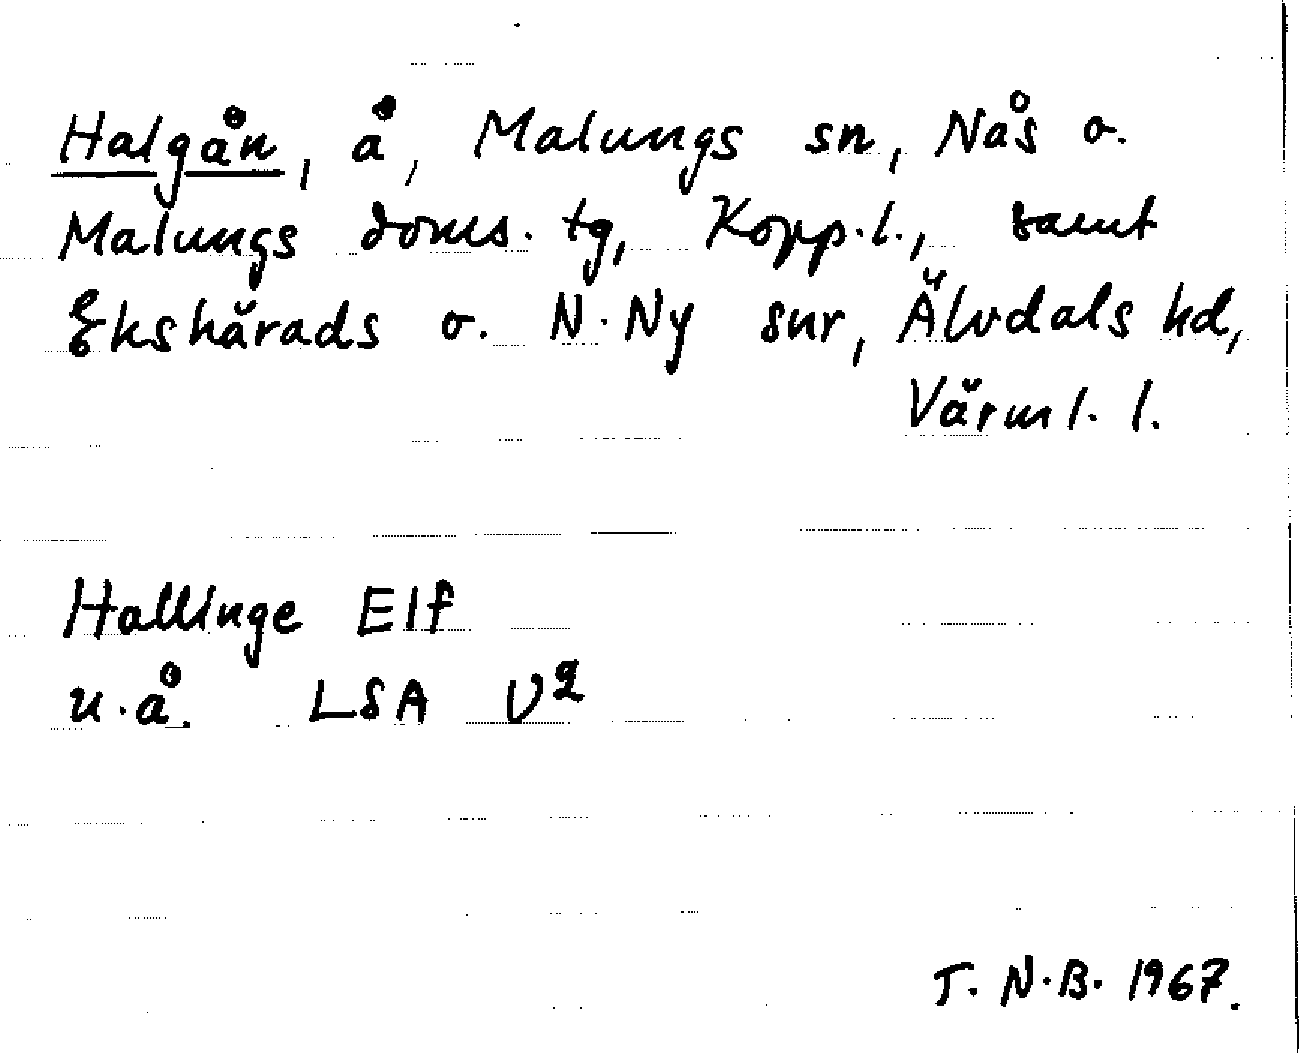 Halgån, å, Malungs sn, Nås o.
Malungs doms. tg, Kopp. l., samt
Ekshärads o. N. Ny snr, Älvdals hd,
Värml. l.
Hallinge Elf
u. å. LSA V2
T. N. B. 1967.